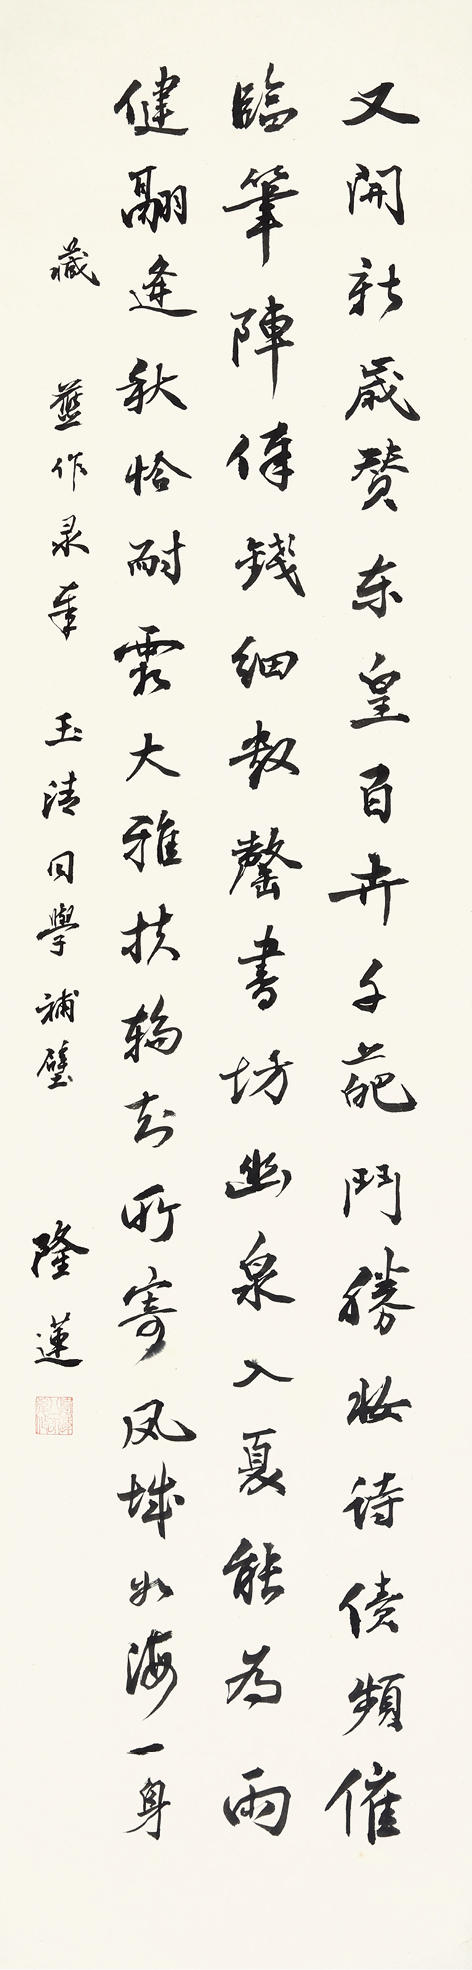 又開新歲贊東皇百卉千葩鬥勝妝詩債頻催
臨筆陣俸錢細數罄書坊幽泉入夏能為雨
健翮逢秋恰耐霜大雅扶輪知所寄鳳城如海一身
藏 舊作录奉 玉清同學補壁 隆蓮